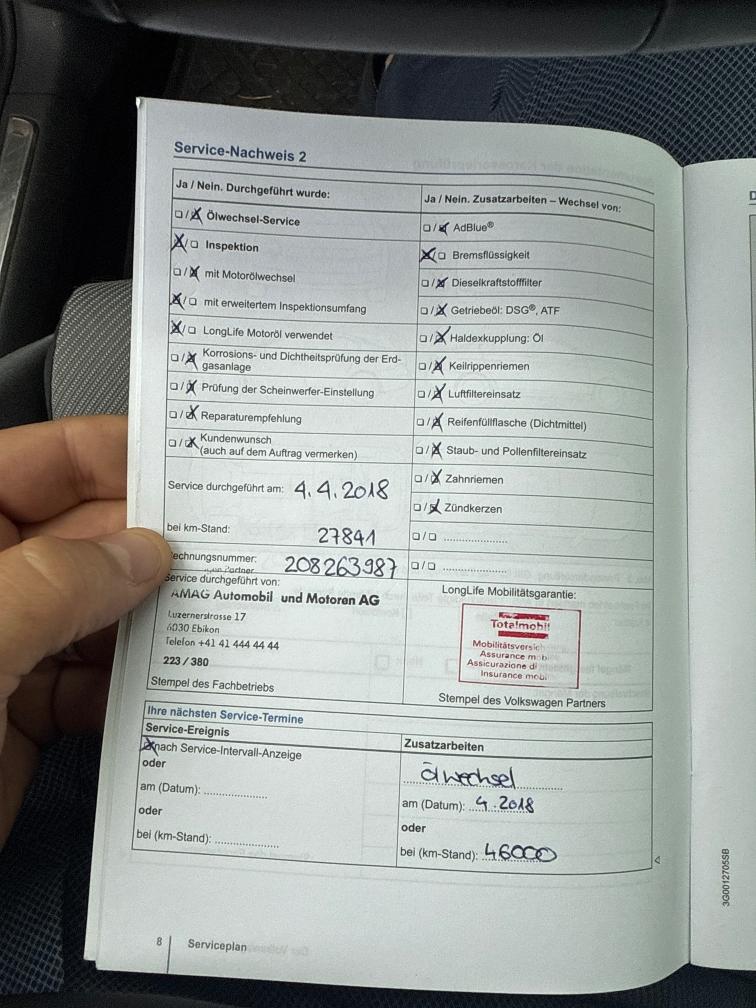 Service-Nachweis 2
Ja / Nein. Durchgeführt wurde:
☐/☒ Ölwechsel-Service
☒/☐ Inspektion
☐/☒ mit Motorölwechsel
☒/☐ mit erweitertem Inspektionsumfang
☒/☐ LongLife Motoröl verwendet
☐/☒ Korrosions- und Dichtheitsprüfung der Erd-
gasanlage
☐/☒ Prüfung der Scheinwerfer-Einstellung
☐/☒ Reparaturempfehlung
☐/☒ Kundenwunsch
(auch auf dem Auftrag vermerken)
Service durchgeführt am: 4.4.2018
bei km-Stand: 27841
echnungsnummer: 208263987
Partner
Service durchgeführt von:
AMAG Automobil und Motoren AG
Luzernerstrasse 17
6030 Ebikon
Telefon +41 41 444 44 44
223 / 380
Stempel des Fachbetriebs
Ja / Nein. Zusatzarbeiten – Wechsel von:
☐/☒ AdBlue®
☒/☐ Bremsflüssigkeit
☐/☒ Dieselkraftstofffilter
☐/☒ Getriebeöl: DSG®, ATF
☐/☒ Haldexkupplung: Öl
☐/☒ Keilrippenriemen
☐/☒ Luftfiltereinsatz
☐/☒ Reifenfüllflasche (Dichtmittel)
☐/☒ Staub- und Pollenfiltereinsatz
☐/☒ Zahnriemen
☐/☒ Zündkerzen
☐/☐ ....................
☐/☐ ....................
LongLife Mobilitätsgarantie:
Totalmobil
Mobilitätsversich
Assurance mobi
Assicurazione di
Insurance mobi
Stempel des Volkswagen Partners
Ihre nächsten Service-Termine
Service-Ereignis
☒ nach Service-Intervall-Anzeige
oder
am (Datum): ....................
oder
bei (km-Stand): ....................
Zusatzarbeiten
Ölwechsel
am (Datum): 4.2018
oder
bei (km-Stand): 46000
8 Serviceplan
3G0012705SB
D